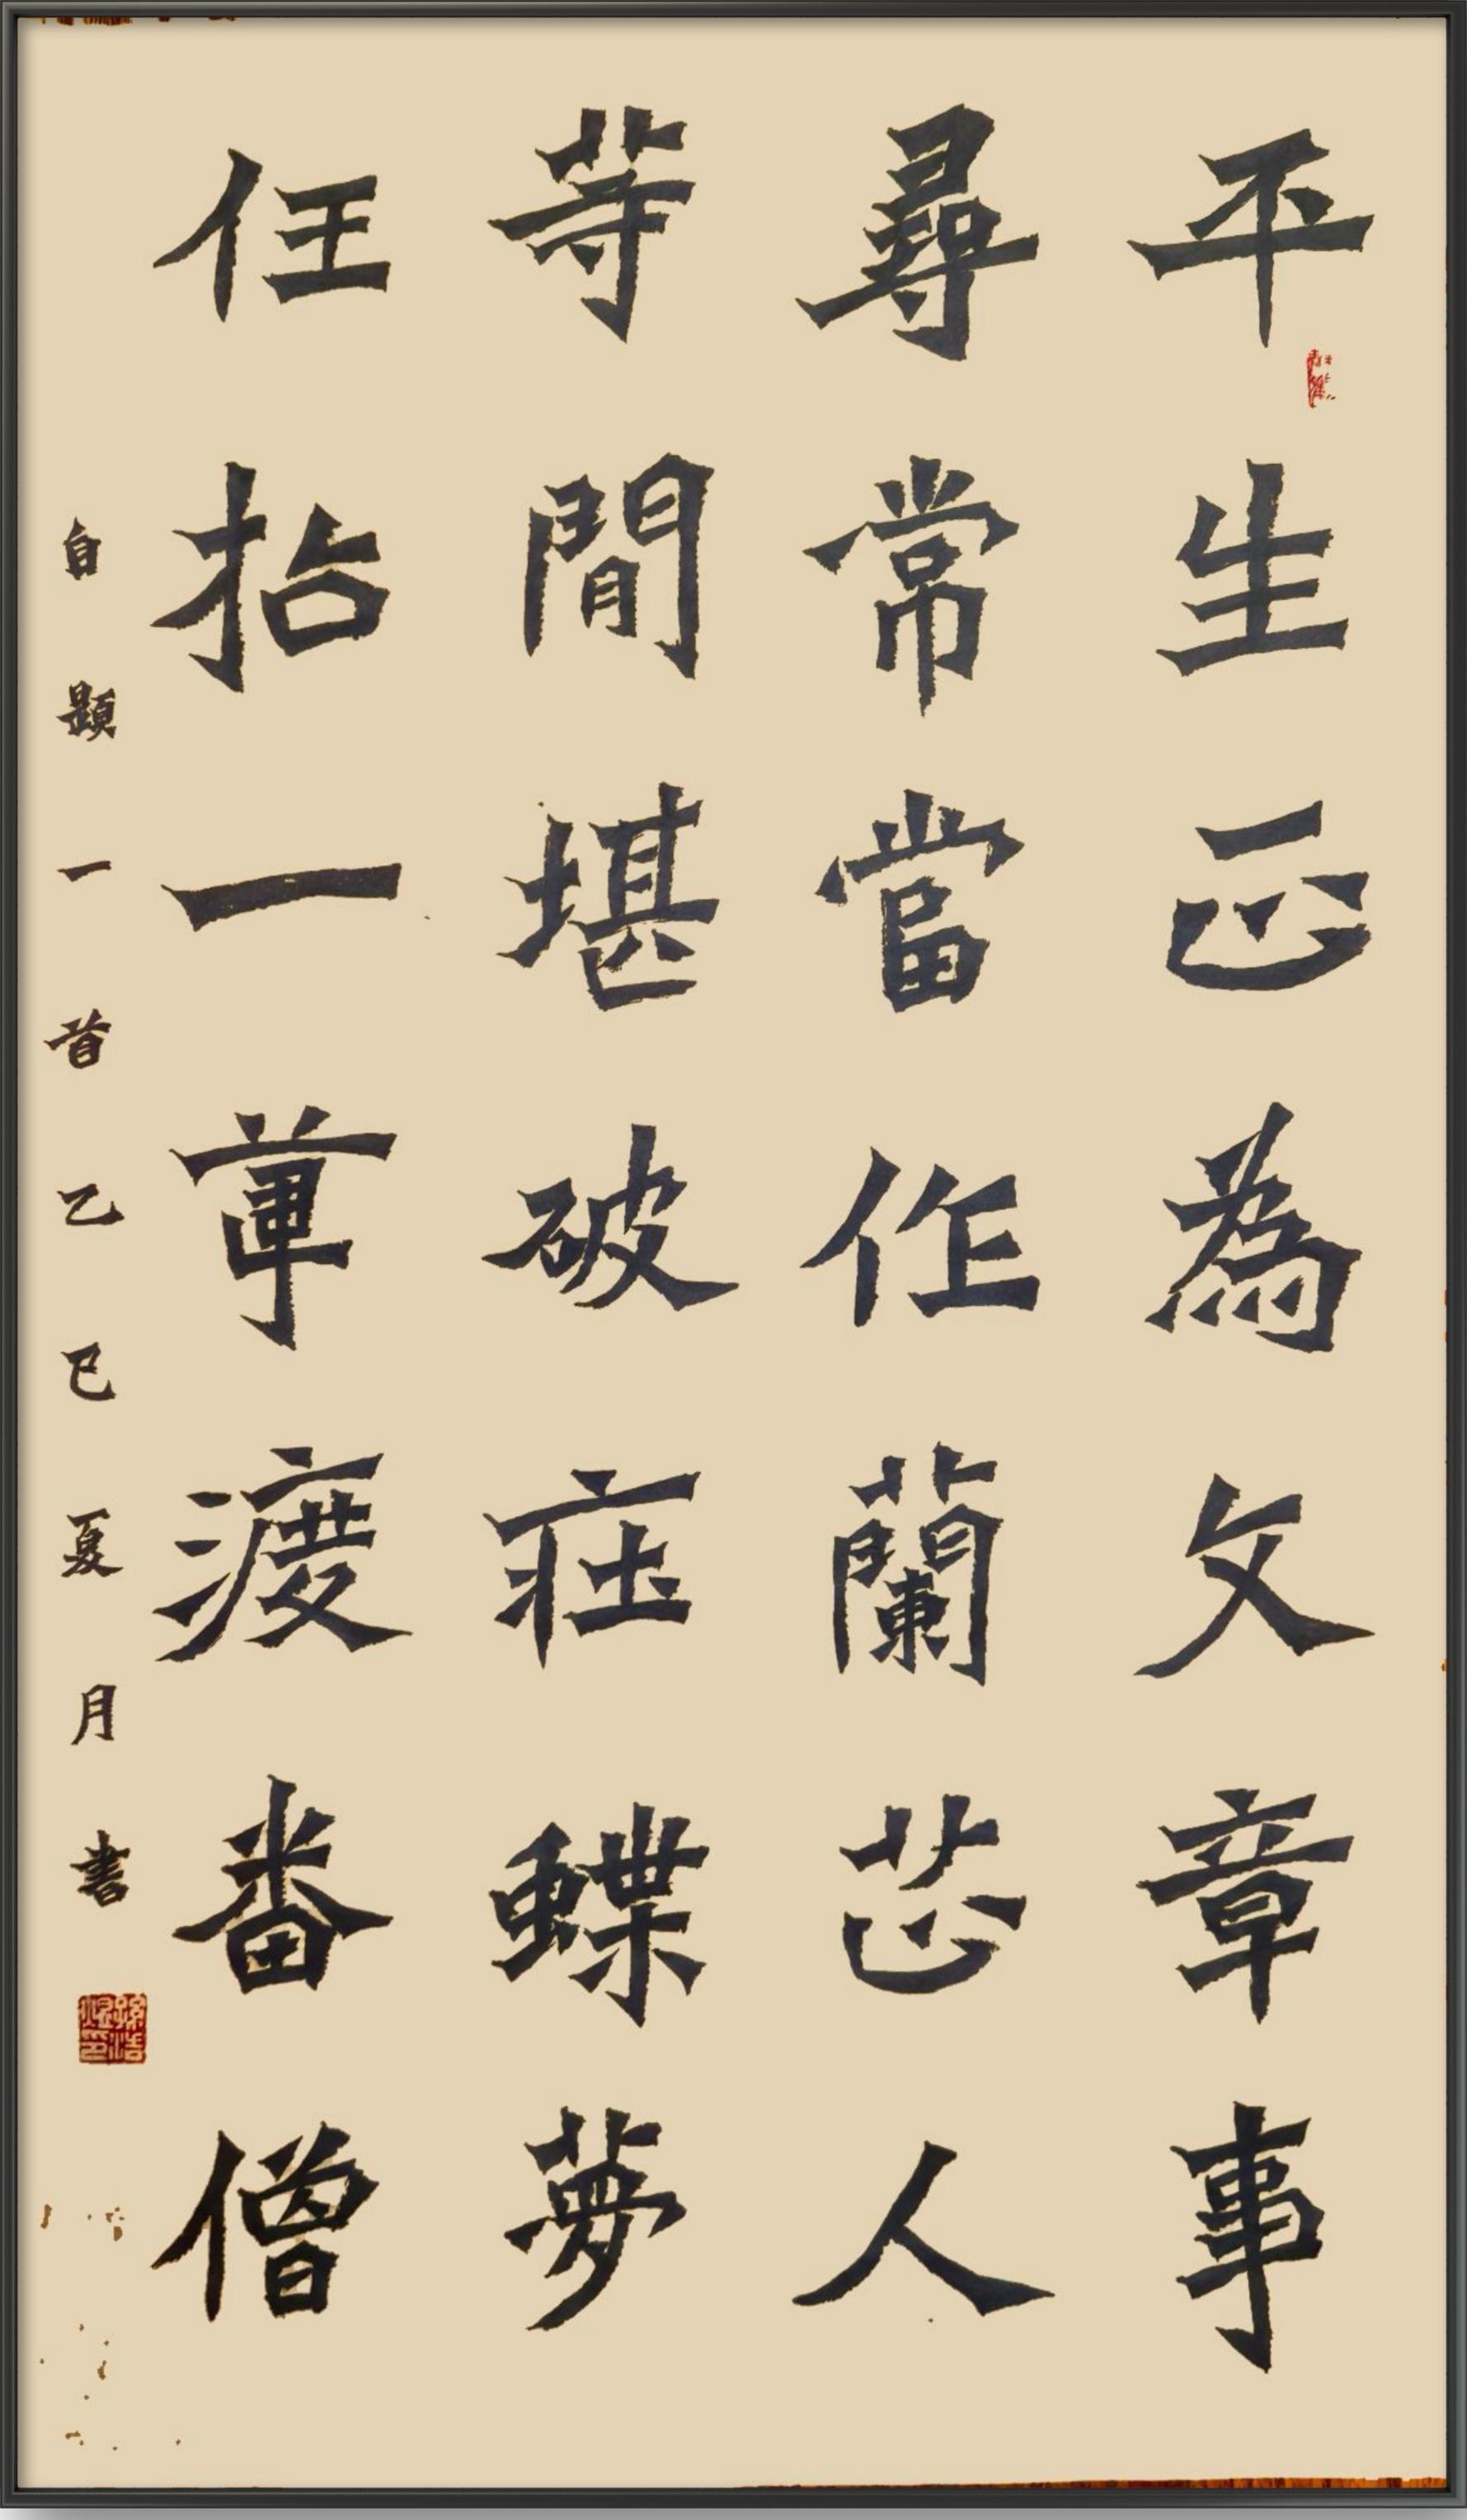 平生正為文章事
尋常當作蘭芷人
等閒堪破莊蝶夢
任拈一葦渡番僧
自題一首乙巳夏月書